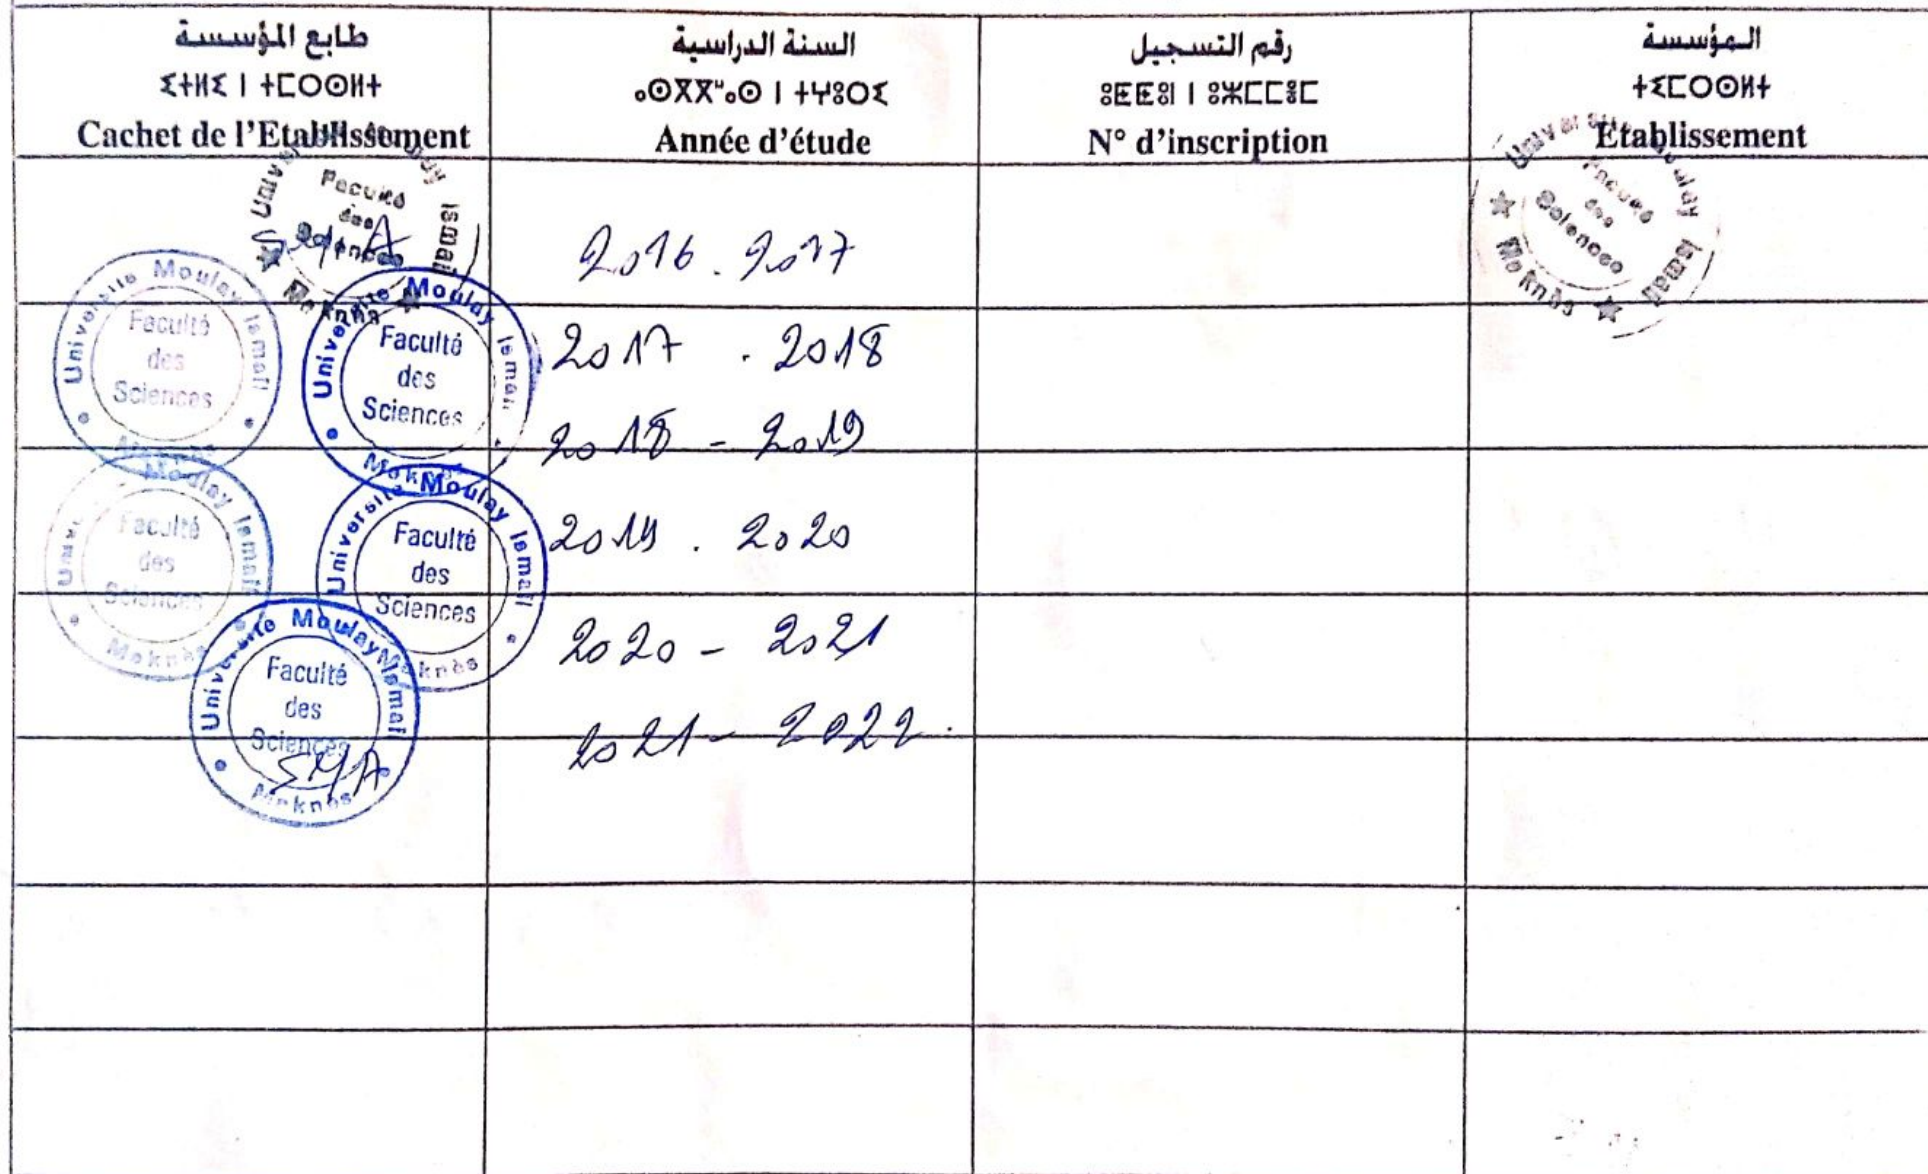 طابع المؤسسة
ⵉⵜⵍⵉ ⵏ ⵜⵎⵔⵙⵍⵜ
Cachet de l'Etablissement
السنة الدراسية
ⴰⵙⴳⴳⵯⴰⵙ ⵏ ⵜⵖⵓⵔⵉ
Année d'étude
رقم التسجيل
ⵓⵟⵟⵓⵏ ⵏ ⵓⵣⵎⵎⴻⵎ
N° d'inscription
المؤسسة
ⵜⵉⵎⵔⵙⵍⵜ
Etablissement
Université Moulay Ismail
Faculté
des
Sciences
Meknès
2016 . 2017
Université Moulay Ismail
Faculté
des
Sciences
Meknès
Université Moulay Ismail
Faculté
des
Sciences
Université Moulay Ismail
Faculté
des
Sciences
Meknès
2017 . 2018
2018 - 2019
Moulay Ismail
Faculté
des
Sciences
Meknès
Université Moulay Ismail
Faculté
des
Sciences
Meknès
2019 . 2020
2020 - 2021
Université Moulay Ismail
Faculté
des
Sciences
Meknès
2021 - 2022.